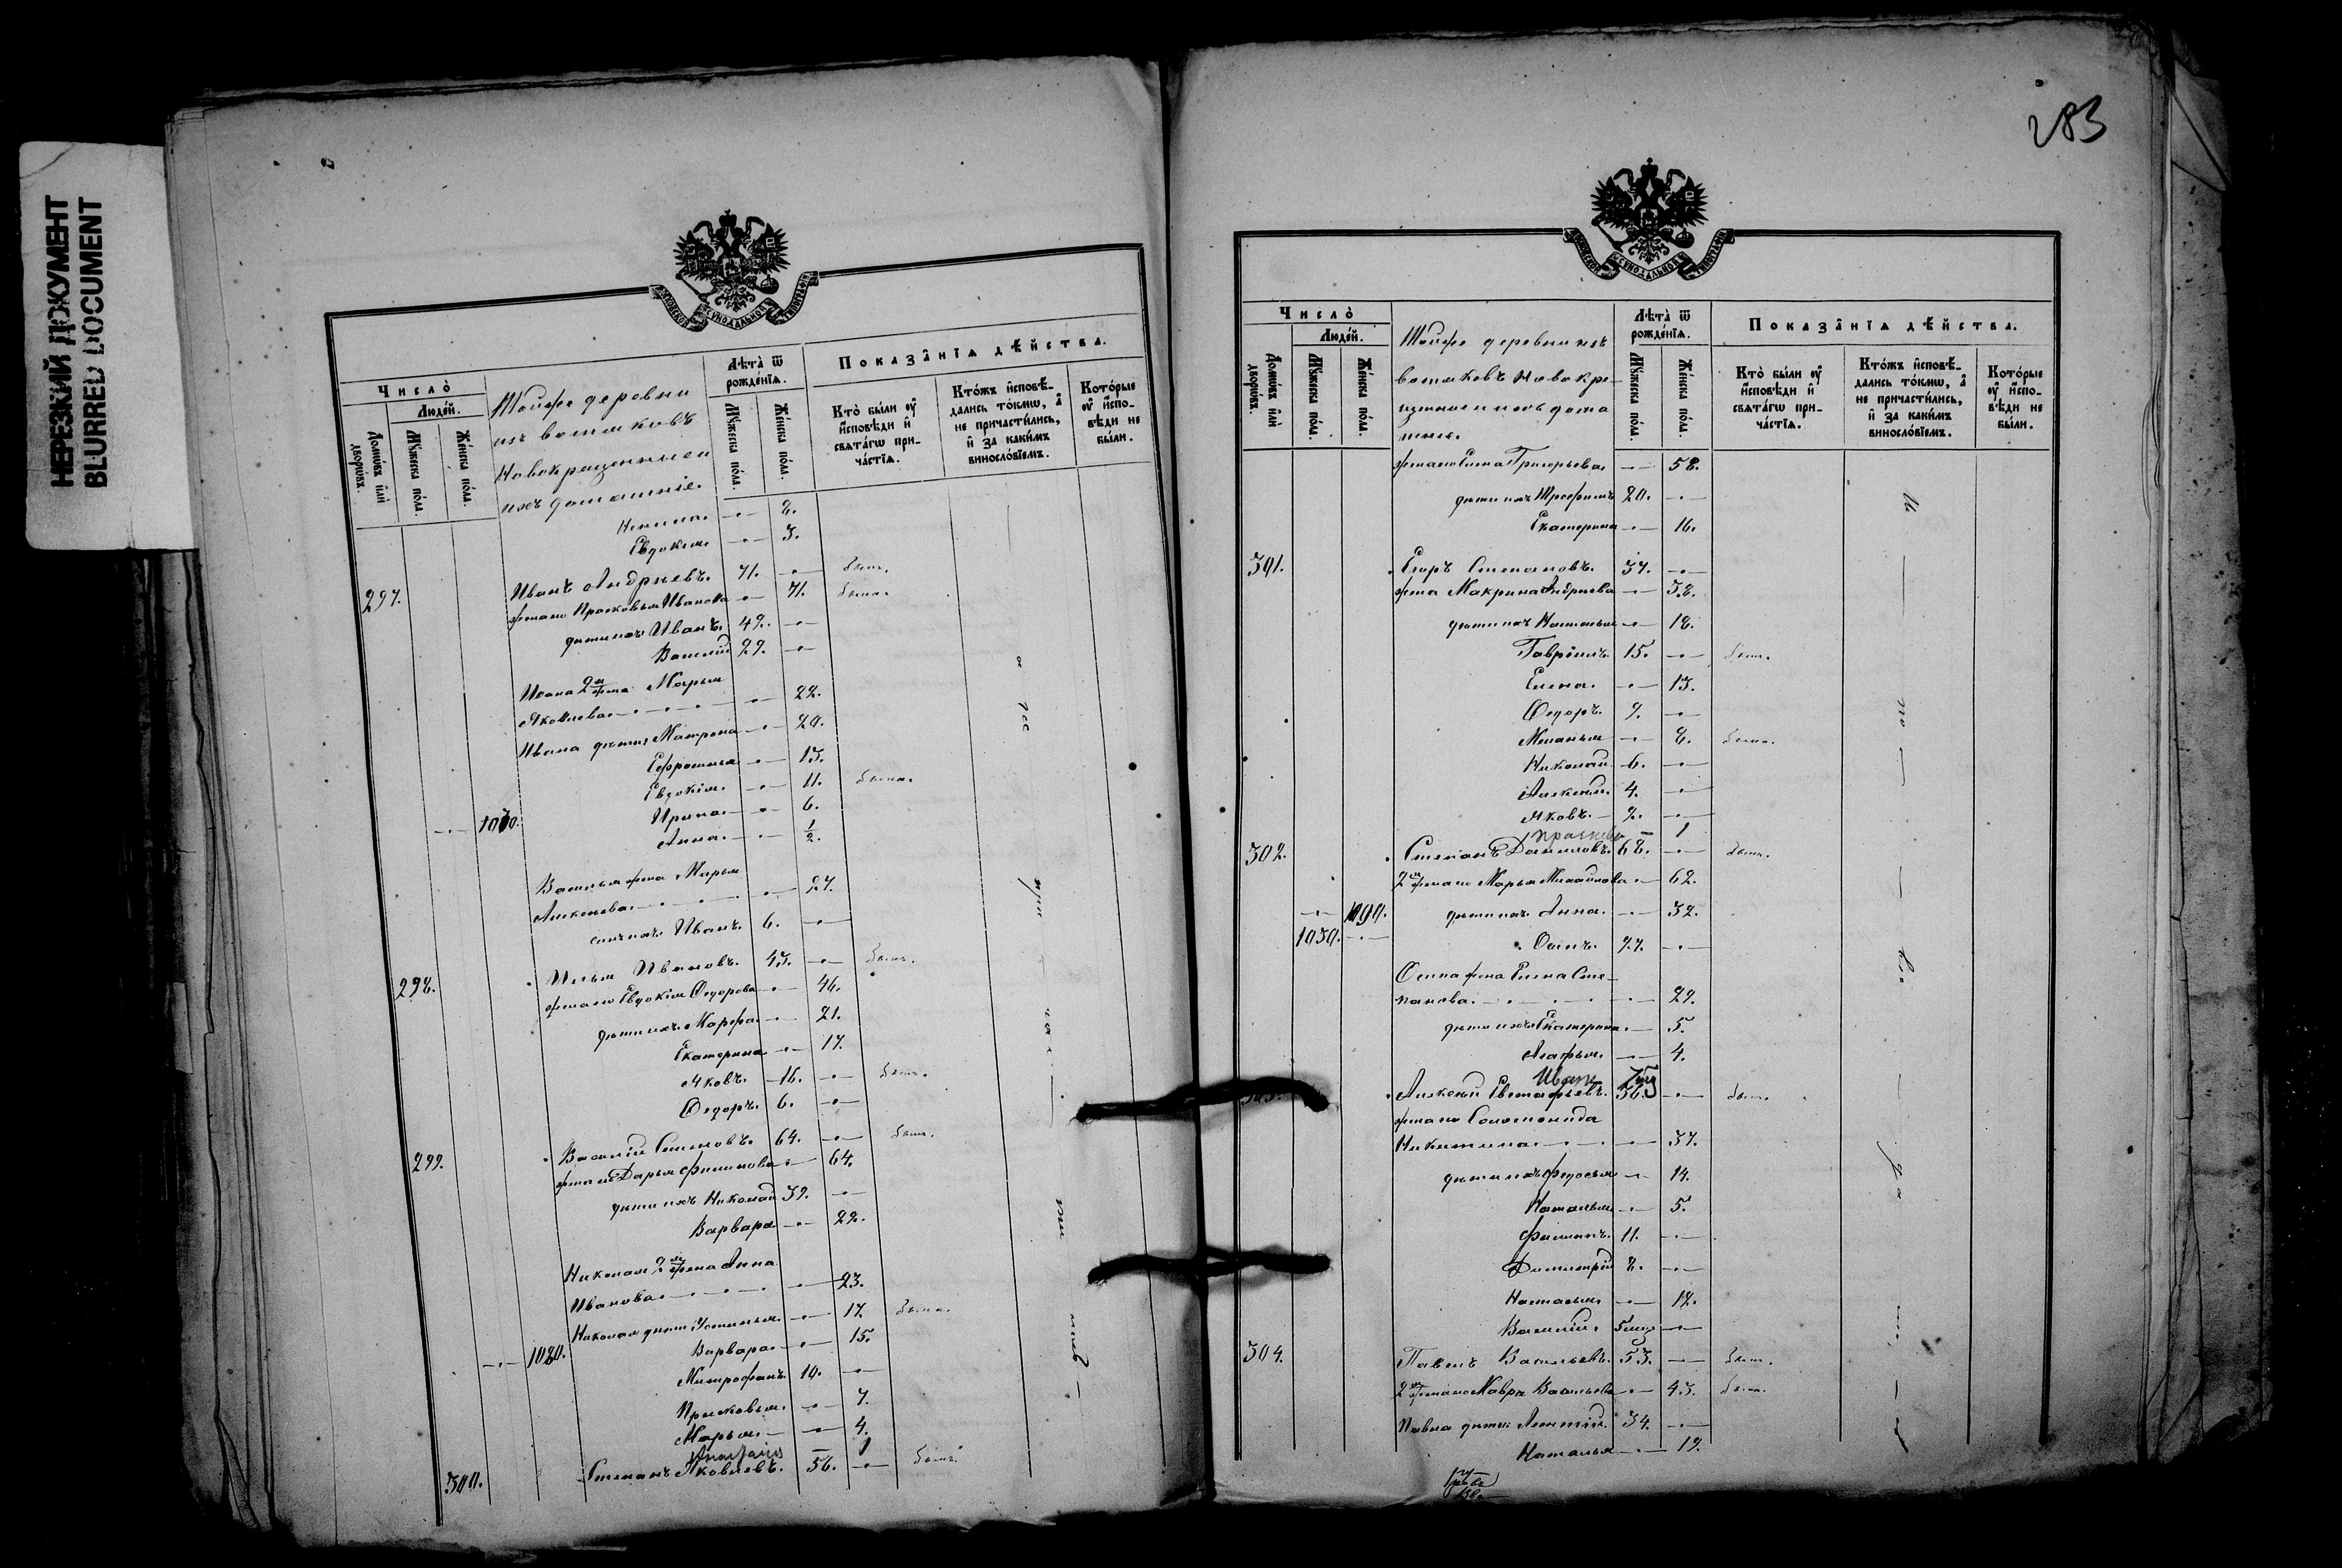 НЕРЕЗКИЙ ДОКУМЕНТ
BLURRED DOCUMENT
МОСКОВСКОЙ СѴНОДАЛЬНОЙ ТИПОГРАФІИ
Число̀
Людей.
Домѡвъ или дворѡвъ.
Мꙋжеска пола.
Женска пола.
Тойже деревни
изъ вотяковъ
Новокрещенные и
ихъ домашніе.
Лѣта ѿ рожденія.
Мꙋжеска пола.
Женска пола.
Показанія дѣйства.
Кто были оу исповѣди и свѧтагѡ причастія.
Ктожъ исповѣдались токмѡ, а не причастились, и за какимъ винословіемъ.
Которые оу исповѣди не были.
2.
Евдокія. 3.
297. Иванъ Андреевъ. 71. былъ.
жена его Прасковья Иванова 71. была.
дѣти ихъ Иванъ. 49.
Василій 29.
Ивана 2я жена Марья
Яковлева 22.
Ивана дѣти Матрона 20.
Ефросинья 13.
Евдокія. 11. была.
Ирина 6.
Анна. 1/2.
Василья жена Марья
Алексѣева 27.
сынъ ихъ Иванъ. 6.
298. Илья Ивановъ. 43. былъ.
жена его Евдокія Ѳедорова 46.
дѣти ихъ Марѳа 21.
Екатерина 17.
Яковъ. 16. былъ.
Ѳедоръ. 6.
299. Василій Семеновъ. 64. былъ.
жена его Дарья Филипова 64.
дѣти ихъ Николай 39.
Варвара 22.
Николая 2я жена Анна
Иванова 23.
Николая дѣти Устинья. 17. была.
1080. Варвара 15.
Митрофанъ 10.
Прасковья. 7.
Марья 4.
Анастасія 1
300. Степанъ Яковлевъ. 56. былъ.
283
МОСКОВСКОЙ СѴНОДАЛЬНОЙ ТИПОГРАФІИ
Число̀
Людей.
Домѡвъ или дворѡвъ.
Мꙋжеска пола.
Женска пола.
Тойже деревни изъ
вотяковъ Новокре-
щенные и ихъ дома
шніе.
Лѣта ѿ рожденія.
Мꙋжеска пола.
Женска пола.
Показанія дѣйства.
Кто были оу исповѣди и свѧтагѡ причастія.
Ктожъ исповѣдались токмѡ, а не причастились, и за какимъ винословіемъ.
Которые оу исповѣди не были.
жена его Григорьева 58.
дѣти ихъ Трофимъ 20.
Екатерина 16.
301. Егоръ Степановъ. 37.
жена Макрина Андреева 38.
дѣти ихъ Наталья 18.
Гавріилъ 15. былъ.
Елена. 13.
Ѳедоръ. 9.
Меланья 8. была.
Николай 6.
Алексѣй. 4.
Яковъ. 2.
1
302. Степанъ Даниловъ. 68. былъ.
2я жена его Марья Михайлова 62.
1090. дѣти ихъ Анна. 32.
1030. Осипъ. 27.
Осипа жена Елена Сте-
панова. 29.
дѣти ихъ Екатерина. 5.
Агафья. 4.
Иванъ
Алексѣй Евстафьевъ. 36. былъ.
жена его Соломонида
Никитина 37.
дѣти ихъ Ѳедосья 14.
Наталья 5.
Филипъ. 11.
Димитрій 8.
Наталья 12.
Василій. 5 мѣс.
304. Павелъ Васильевъ. 53. былъ.
2я жена его Мавра Васильева 43. была.
Павла дѣти: Леонтій. 34.
Наталья 19.